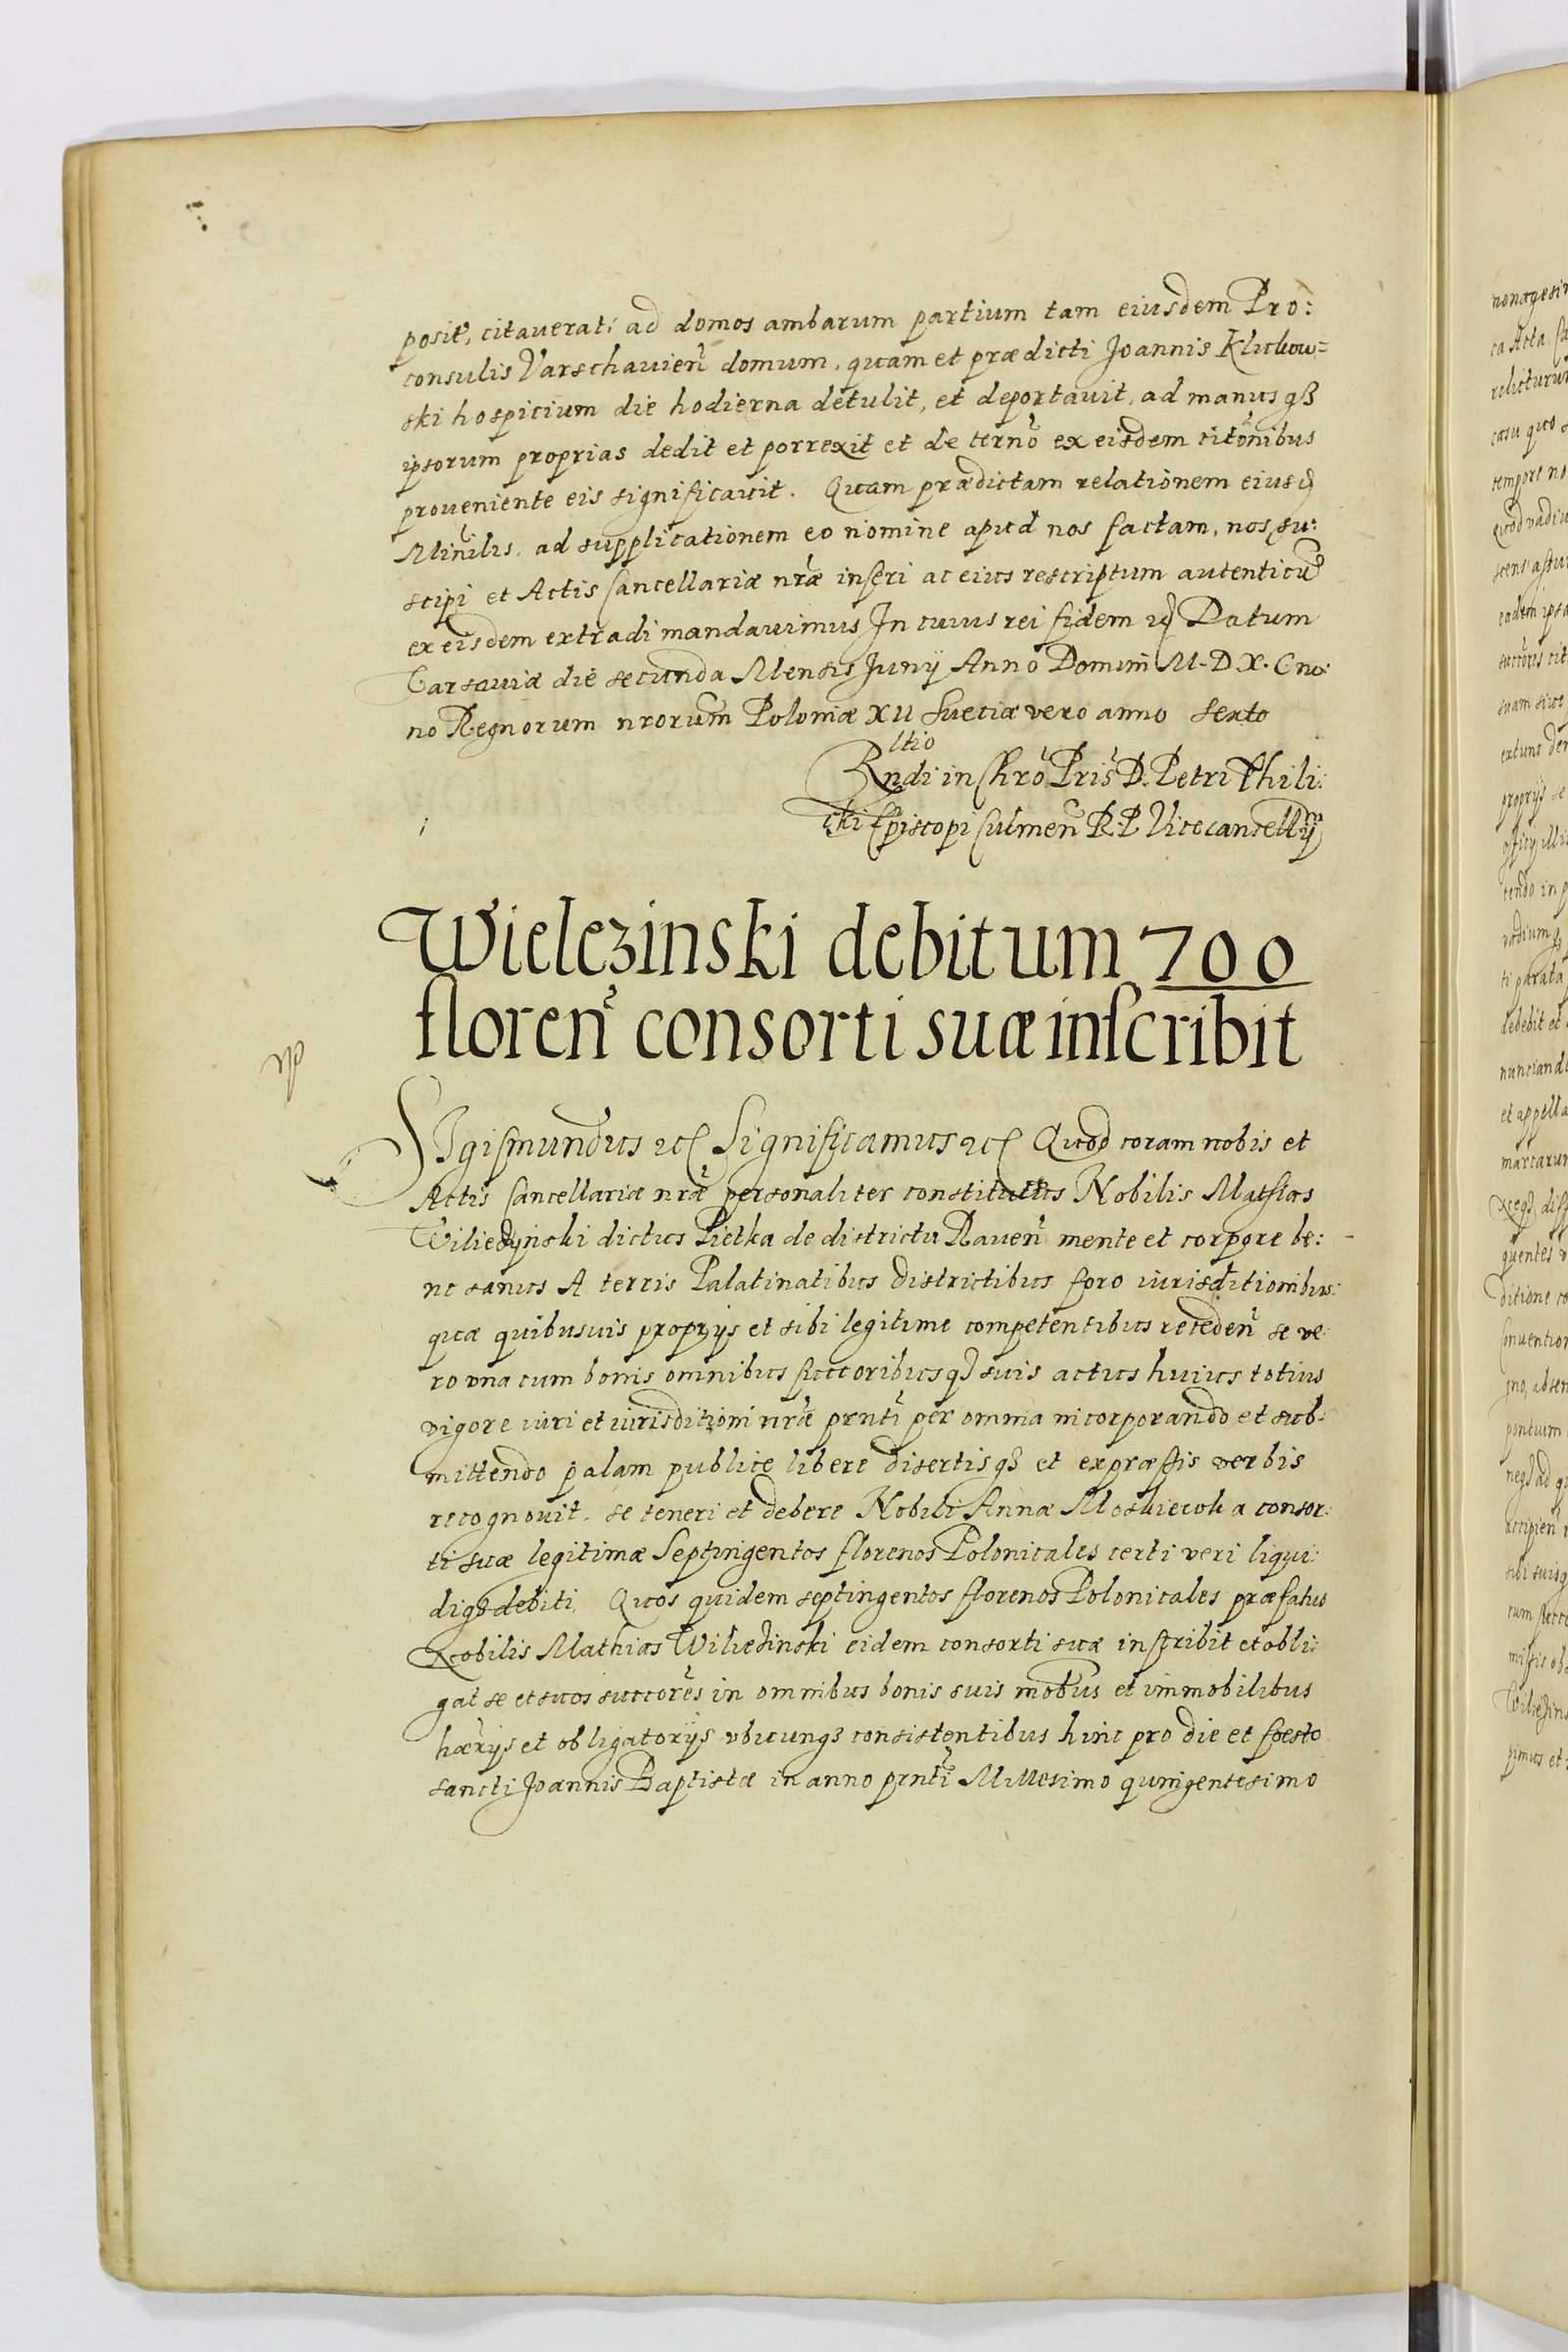 posit, citaverat, ad domos ambarum partium tam eiusdem Pro:
consulis Varschavien domum, quam et prædicti Joannis Kliczkow=
ski hospicium die hodierna detulit, et deportavit, ad manus qȝ
ipsorum proprias dedit et porrexit et de termo ex eisdem citonibus
proveniente eis significavit. Quam prædictam relationem eiusd
Minilis, ad supplicationem eo nomine apud nos factam, nos, su:
scipi et Actis Cancellariæ nræ inseri ac eius rescriptum autenticu
ex eisdem extradi mandavimus In cuius rei fidem Datum
Varsaviæ die secunda Mensis Junÿ Anno Domini M.D.X.C no:
no Regnorum nrorum Poloniæ XII Sueciæ vero anno sexto
ltio
Rndi in Chro Pris D. Petri Thili:
cki Episcopi Culmen R. P. Vicecancellÿ
Wielezinski debitum 700
floren consorti suæ inscribit
SIgismundus ꝛc Significamus ꝛc Quod coram nobis et
Actis Cancellariæ nræ personaliter constitutus Nobilis Mathias
Wiliezÿnski dictus Pietka de districtu Raven mente et corpore be:
ne sanus A terris Palatinatibus districtibus foro iurisditionibus:
quæ quibusuis proprÿs et sibi legitime competentibus receden se ve:
ro vna cum bonis omnibus succoribus qȝ suis actus huius totius
vigore iuri et iurisditioni nræ prnti per omnia incorporando et sub:
mittendo palam publice libere disertis qȝ et expræssis verbis
recognouit, se teneri et debere Nobili Annæ consor:
ti suæ legitimæ Septingentos florenos Polonicales certi veri liqui:
di qȝ debiti, Quos quidem septingentos florenos Polonicales præfatus
Nobilis Mathias Wiliezinski eidem consorti suæ inscribit et obli:
gat se et suos succores in omnibus bonis suis mobus et immobilibus
hærÿs et obligatorÿs vbicunqȝ consistentibus hinc pro die et foesto
sancti Joannis Baptistæ in anno prnti Millesimo quingentesimo